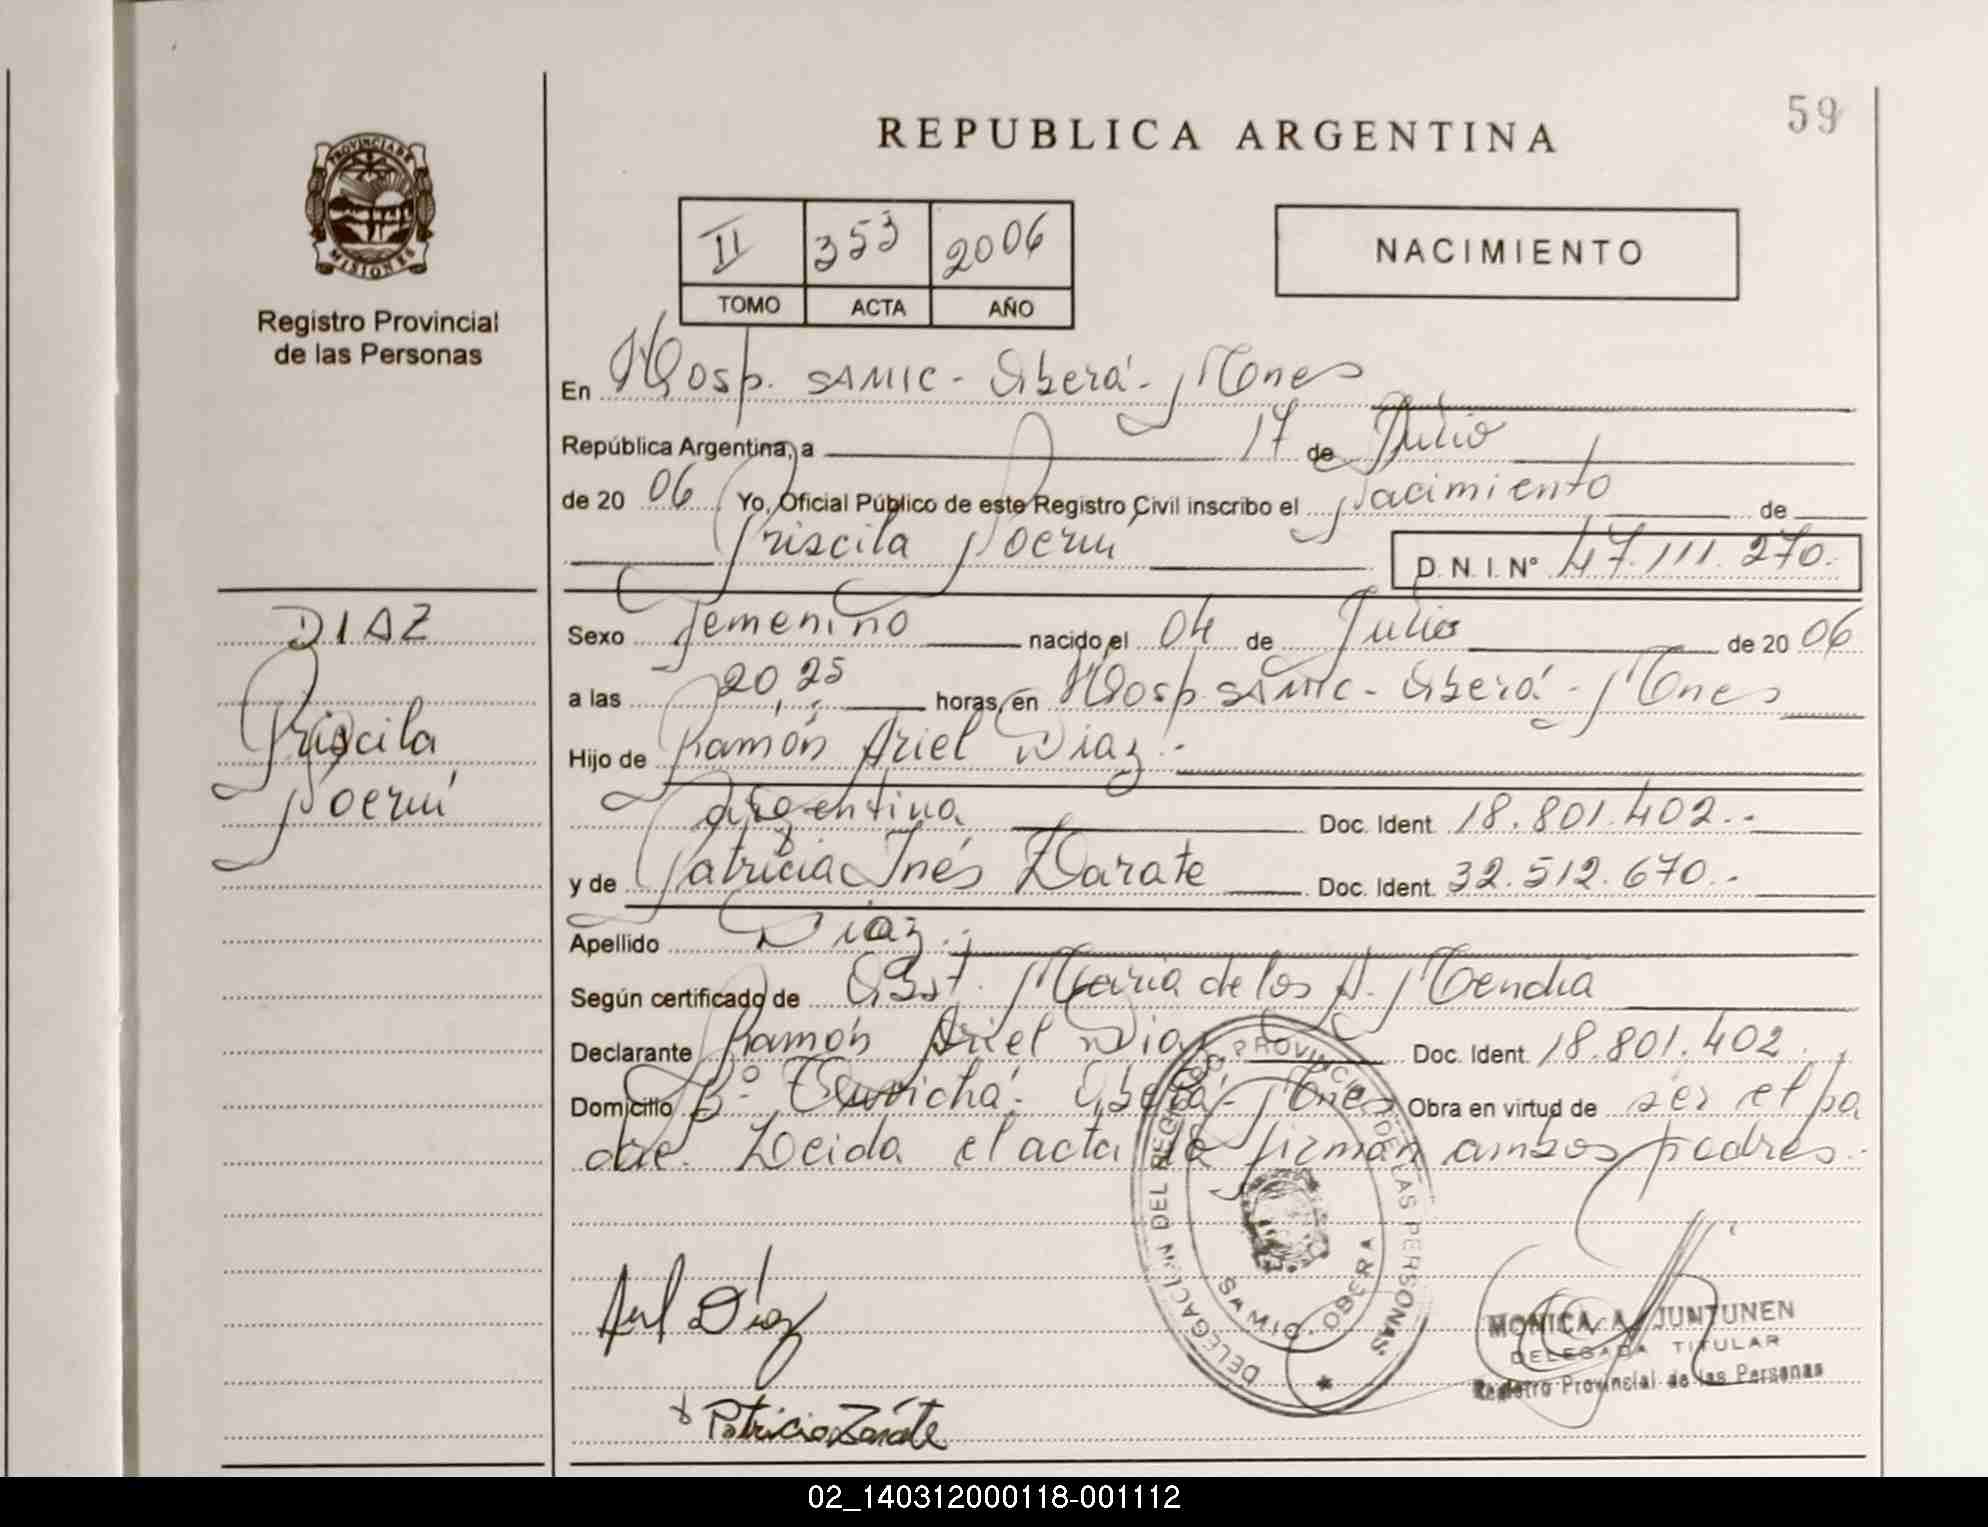 59
REPUBLICA ARGENTINA
PROVINCIA DE
MISIONES
Registro Provincial
de las Personas
II 353 2006
TOMO ACTA AÑO
NACIMIENTO
En Hosp. SAMIC - Oberá - Mnes
República Argentina, a 17 de Julio
de 20 06 Yo, Oficial Público de este Registro Civil inscribo el Nacimiento de
Priscila Noemí D.N.I. Nº 47.111.270.
DIAZ
Priscila
Noemí
Sexo femenino nacido el 04 de Julio de 20 06
a las 20,25 horas, en Hosp. SAMIC - Oberá - Mnes
Hijo de Ramón Ariel Diaz.-
argentina Doc. Ident. 18.801.402.-
y de Patricia Inés Zarate Doc. Ident. 32.512.670.-
Apellido Diaz.-
Según certificado de Obst. María de los A. Mendia
Declarante Ramón Ariel Diaz Doc. Ident. 18.801.402.
Domicilio Bº Oberá - Mnes Obra en virtud de ser el pa
dre. Leida el acta la firman ambos padres.-
DELEGACION DEL REGISTRO PROVINCIAL DE LAS PERSONAS
SAMIC. OBERA
Ariel Díaz
x Patricia Zarate
MONICA A. JUNTUNEN
DELEGADA TITULAR
Registro Provincial de las Personas
02_140312000118-001112